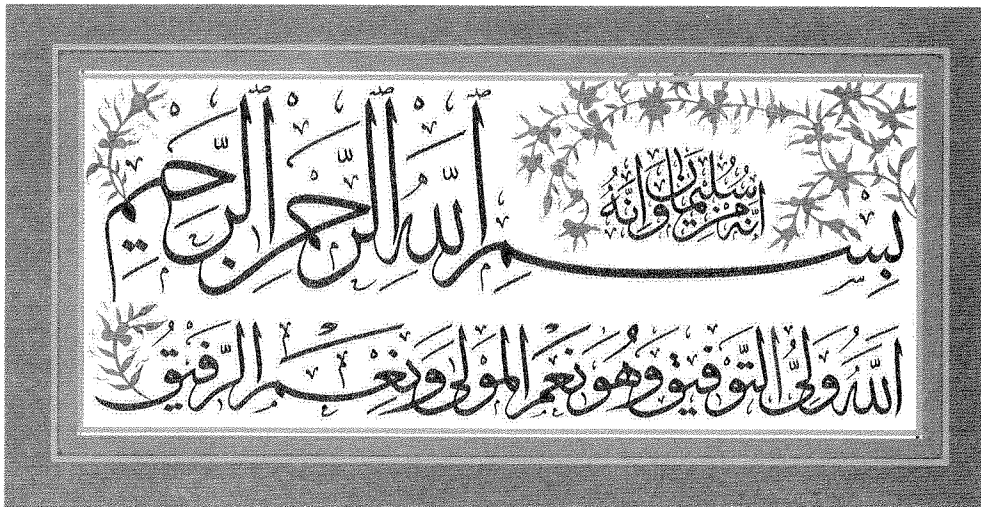 إِنَّهُ مِنْ سُلَيْمَانَ وَإِنَّهُ
بِسْمِ اللَّهِ الرَّحْمَنِ الرَّحِيمِ
اللَّهُ وَلِيُّ التَّوْفِيقِ وَهُوَ نِعْمَ الْمَوْلَى وَنِعْمَ الرَّفِيقُ